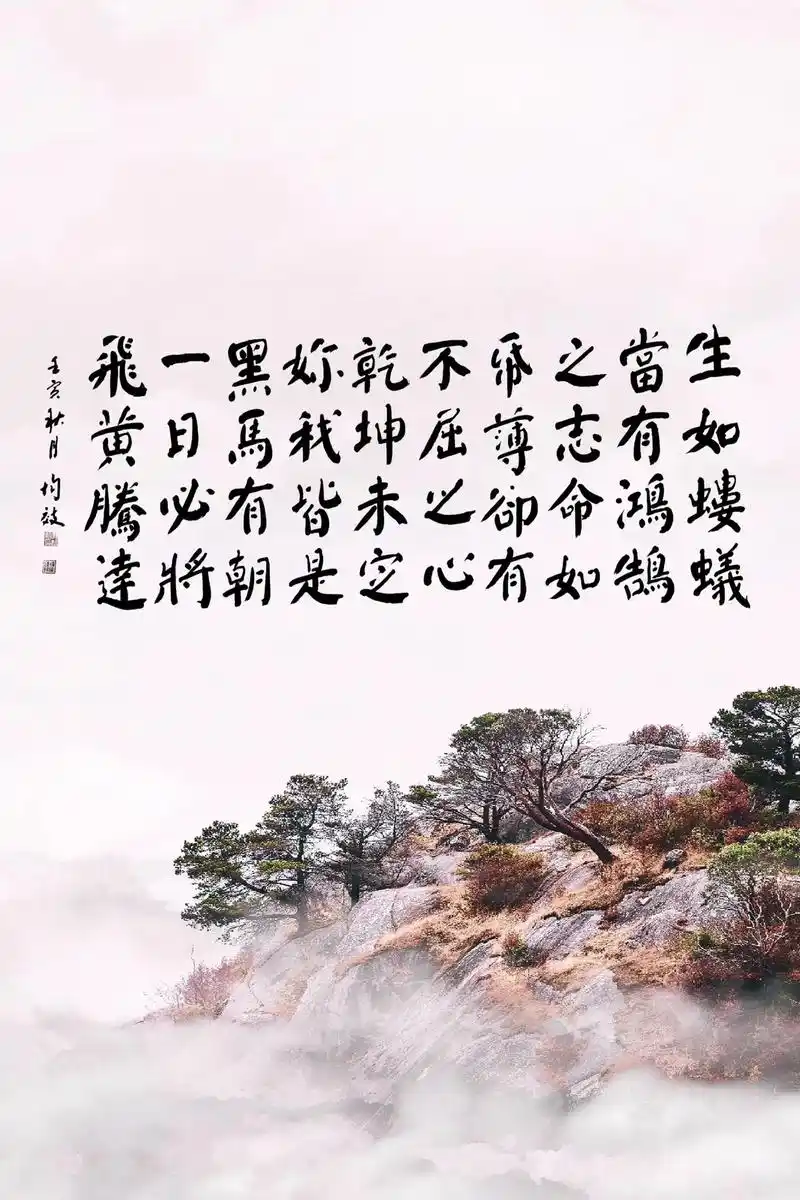 生如螻蟻
當有鴻鵠
之志命如
帋薄卻有
不屈之心
乾坤未定
妳我皆是
黑馬有朝
一日必將
飛黄騰達
壬寅秋月均